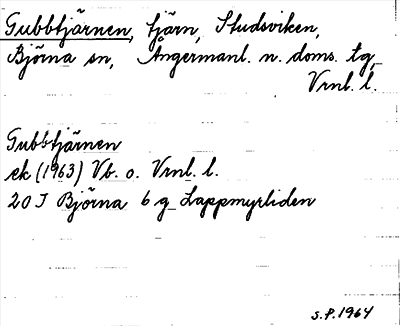 Gubbtjärnen, tjärn, Studsviken,
Björna sn, Ångermanl. n. doms. tg,
Vrnl. l.
Gubbtjärnen
ek (1963) Vb. o. Vrnl. l.
20 I Björna 6 g Lappmyrliden
S.P. 1964